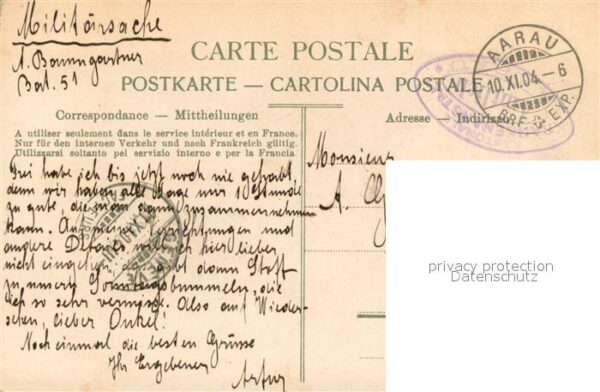 Militärsache
A. Baumgartner
Bat. 51
CARTE POSTALE
POSTKARTE — CARTOLINA POSTALE
AARAU
10.XI.04 - 6
BRF. EXP.
Correspondance — Mittheilungen
Adresse — Indirizzo
A utiliser seulement dans le service intérieur et en France.
Nur für den internen Verkehr und nach Frankreich gültig.
Utilizzarsi soltanto pel servizio interno e per la Francia
Frei habe ich bis jetzt noch nie gehabt,
denn wir haben alle Tage nur 1 Stunde
zu gute, die man dann zusammennehmen
kann. Auf meine und
andere Details will ich hier lieber
nicht eingehen, das gibt dann Stoff
zu unsern Sonntagsbummeln, die
ich so sehr vermisse. Also auf Wieder-
sehen, lieber Onkel!
Noch einmal die besten Grüsse
Ihr Ergebener
Arthur
Monsieur
A.
privacy protection
Datenschutz